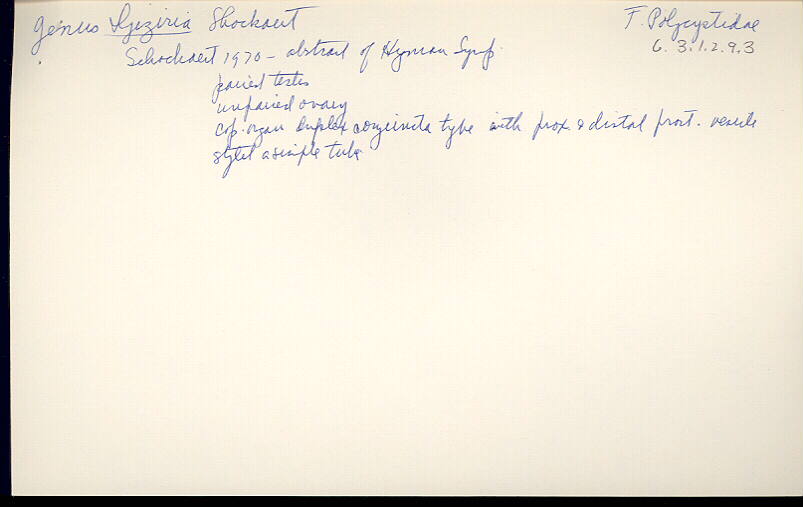 Genus Djeziria Shockaert
F. Polycystidae
6. 3.1.2.9.3
Schockaert 1970 - abstract of Hyman Symp.
paired testes
unpaired ovary
cop. organ duplex conjuncta type with prox. & distal prost. vesicle
stylet a simple tube